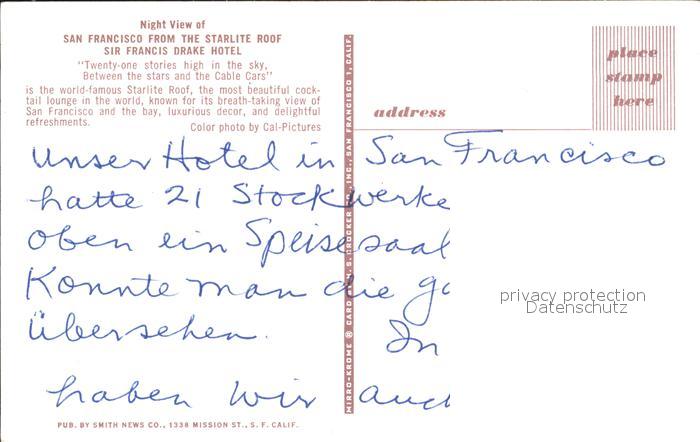 Night View of
SAN FRANCISCO FROM THE STARLITE ROOF
SIR FRANCIS DRAKE HOTEL
"Twenty-one stories high in the sky,
Between the stars and the Cable Cars"
is the world-famous Starlite Roof, the most beautiful cock-
tail lounge in the world, known for its breath-taking view of
San Francisco and the bay, luxurious decor, and delightful
refreshments.
Color photo by Cal-Pictures
place
stamp
here
address
Unser Hotel in San Francisco
hatte 21 Stockwerke
oben ein Speisesaal
Konnte man die
übersehen. In
haben wir
privacy protection
Datenschutz
MIRRO-KROME ® CARD BY H. S. CROCKER CO., INC., SAN FRANCISCO 1, CALIF.
PUB. BY SMITH NEWS CO., 1338 MISSION ST., S. F. CALIF.